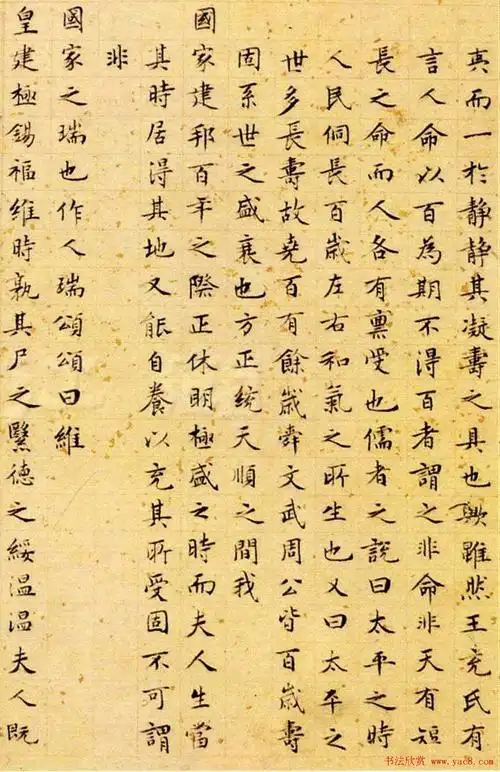 真而一於靜靜其凝壽之具也歟雖然王充氏有
言人命以百為期不得百者謂之非命非天有短
長之命而人各有稟受也儒者之說曰太平之時
人民侗長百歲左右和氣之所生也又曰太平之
世多長壽故堯百有餘歲舜文武周公皆百歲壽
固系世之盛衰也方正統天順之間我
國家建邦百年之際正休明極盛之時而夫人生當
其時居得其地又能自養以充其所受固不可謂
非
國家之瑞也作人瑞頌頌曰維
皇建極錫福維時孰其尸之繄德之綏温温夫人既
书法欣赏
www.yac8.com